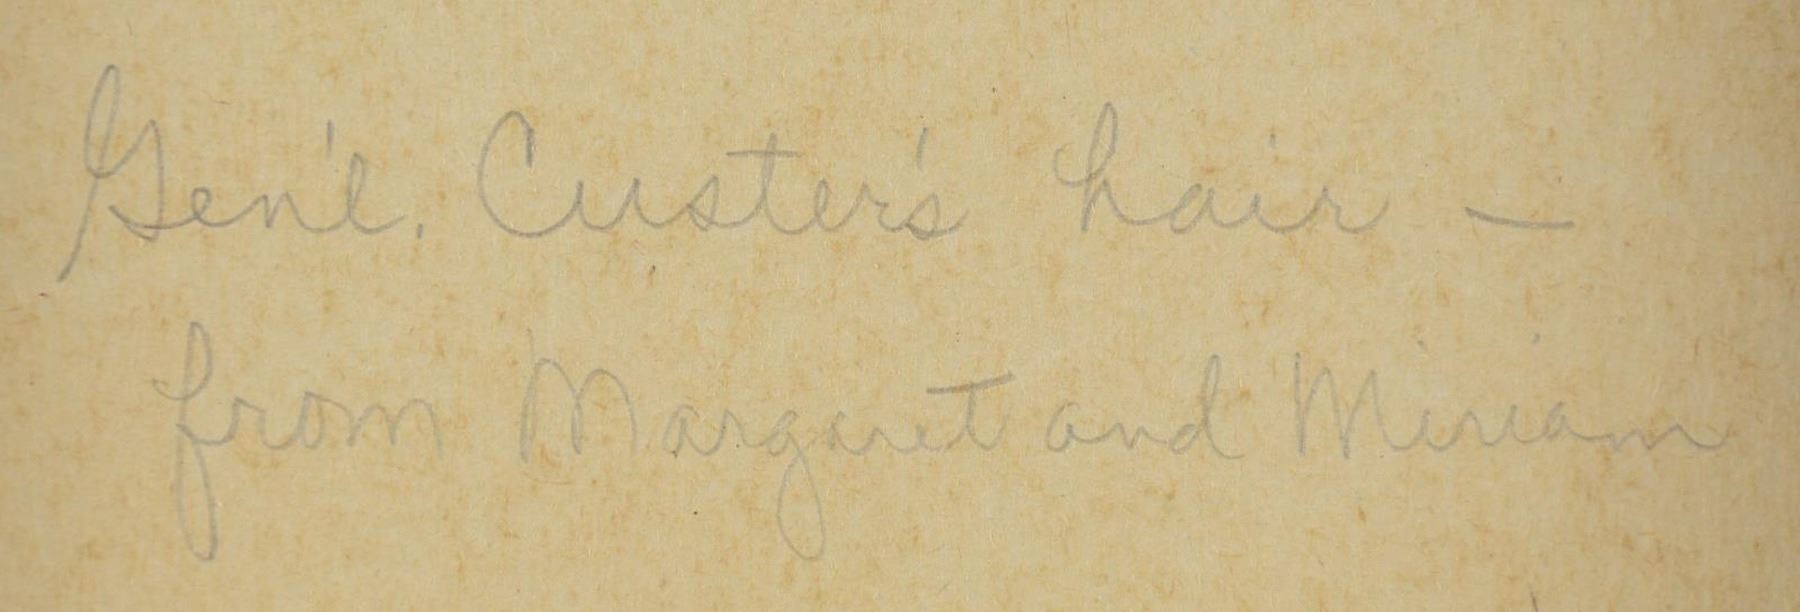 Gen'l. Custer's hair —
from Margaret and Miriam